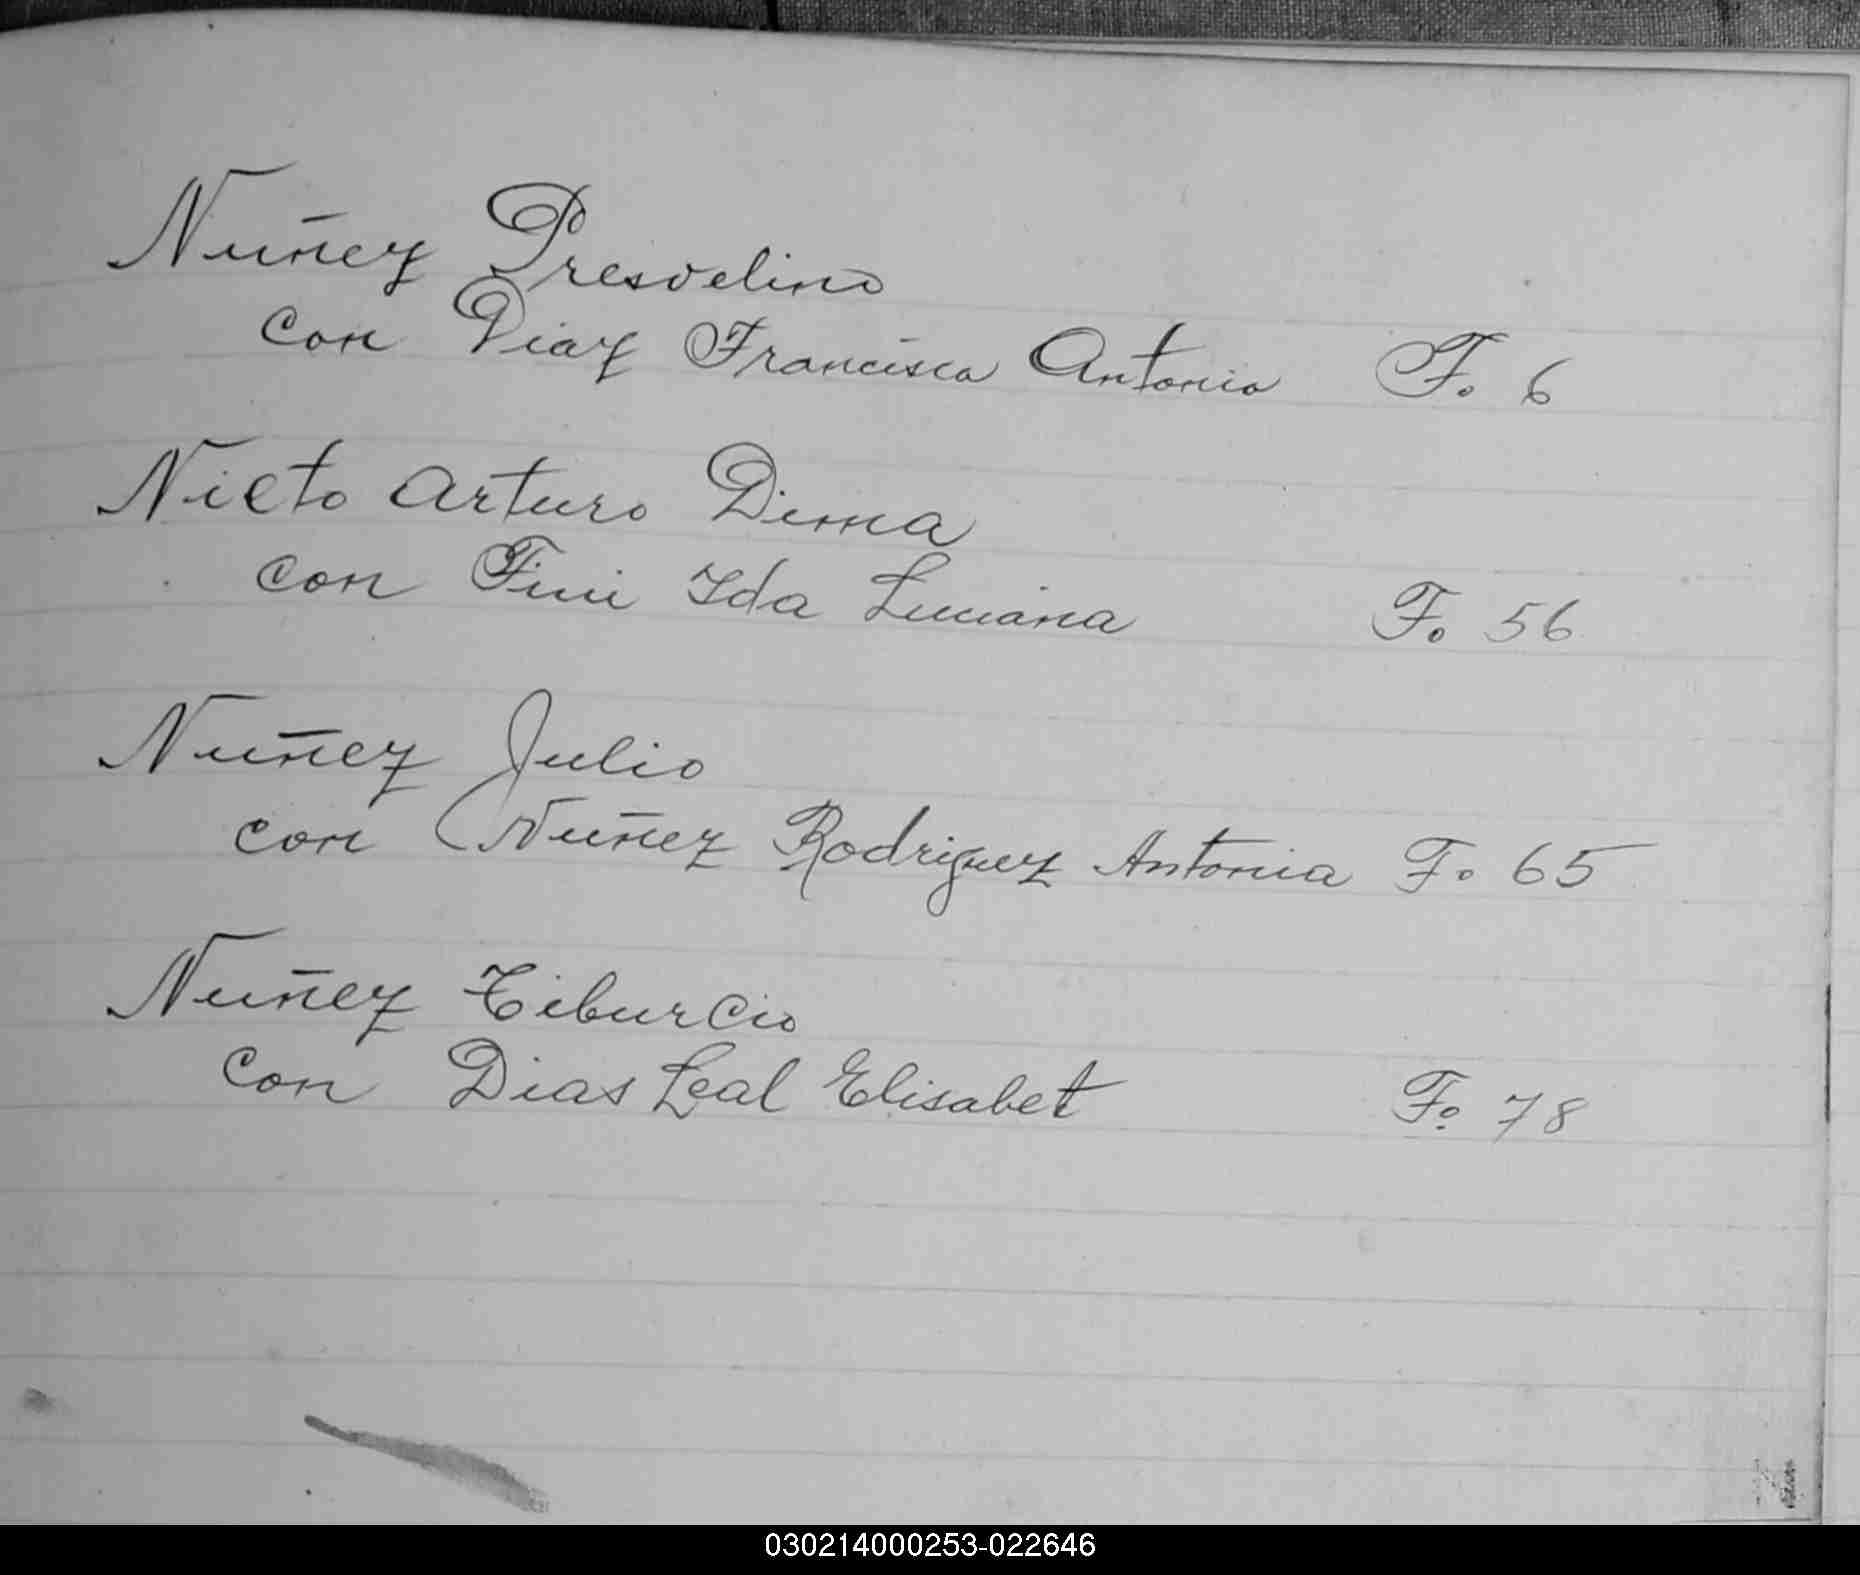 Nuñez Presvelino
con Diaz Francisca Antonia F. 6
Nieto Arturo Dima
con Fini Ida Luciana F. 56
Nuñez Julio
con Nuñez Rodriguez Antonia F. 65
Nuñez Tiburcio
con Dias Leal Elisabet Fº 78
030214000253-022646